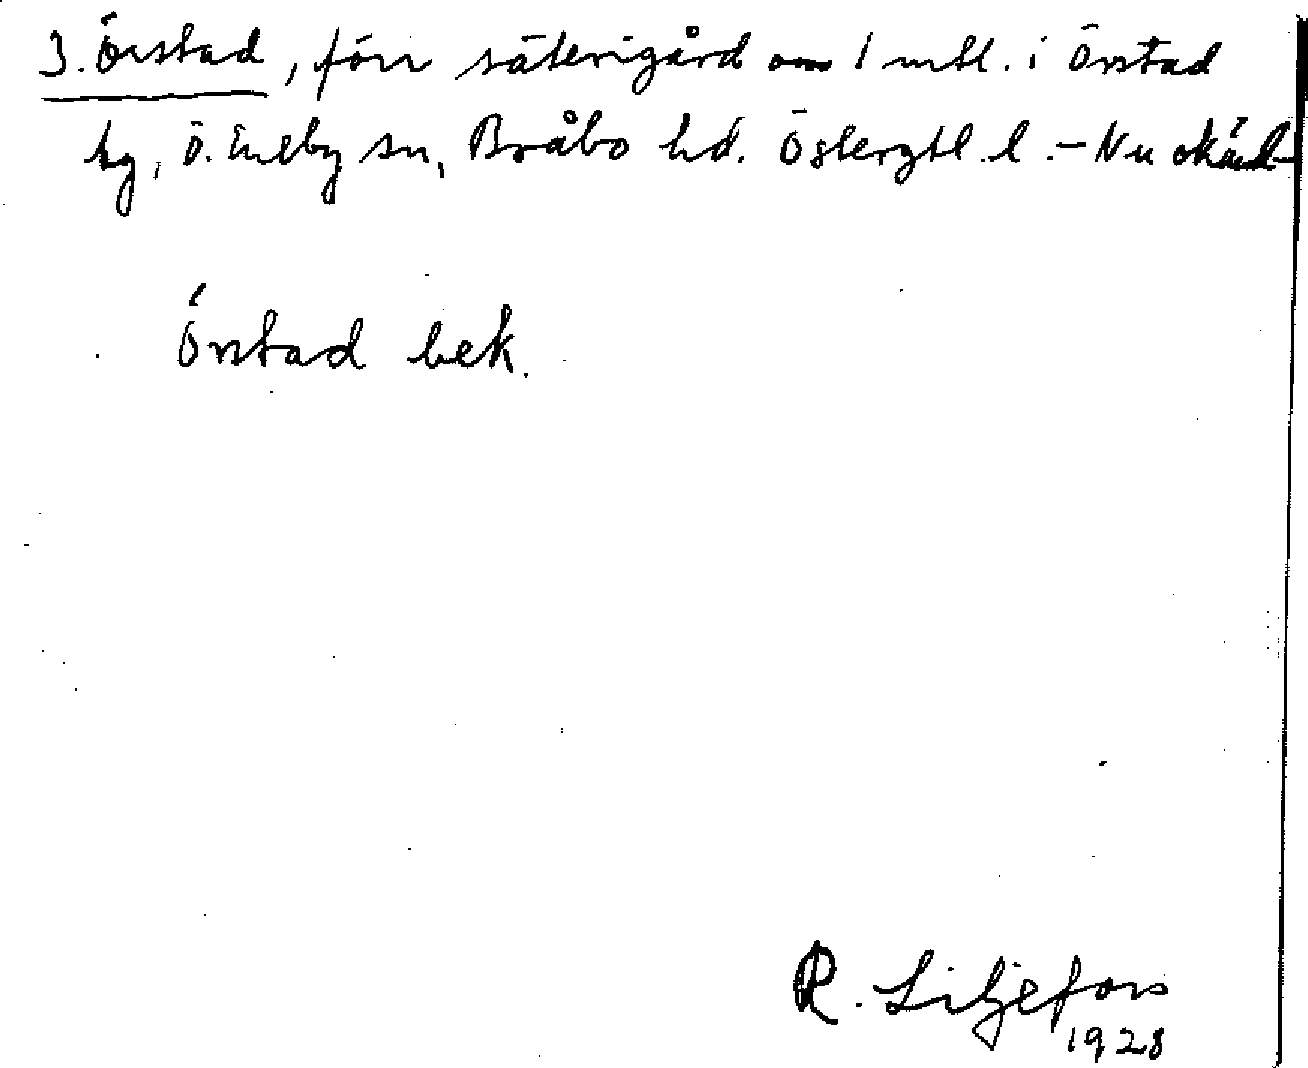 3. Örstad, förr säterigård om 1 mtl. i Örstad
by, Ö. Eneby sn, Bråbo hd. Östergtl. l. - Nu okänd -
Örstad bek.
R. Liljefors
1928